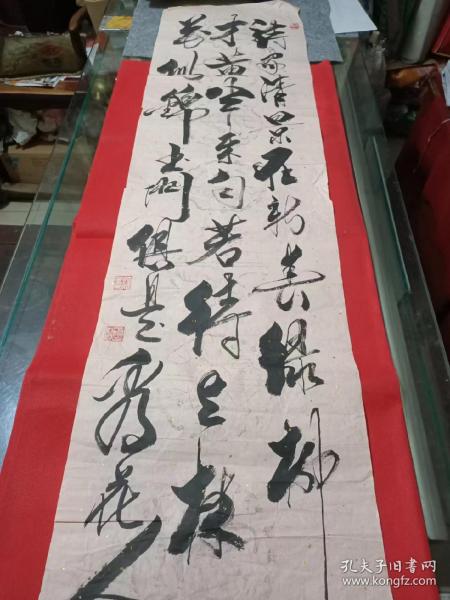 诗家清景在新春绿柳
才黄半未匀若待上林
花似锦出门俱是看花
人
孔夫子旧书网
www.kongfz.com